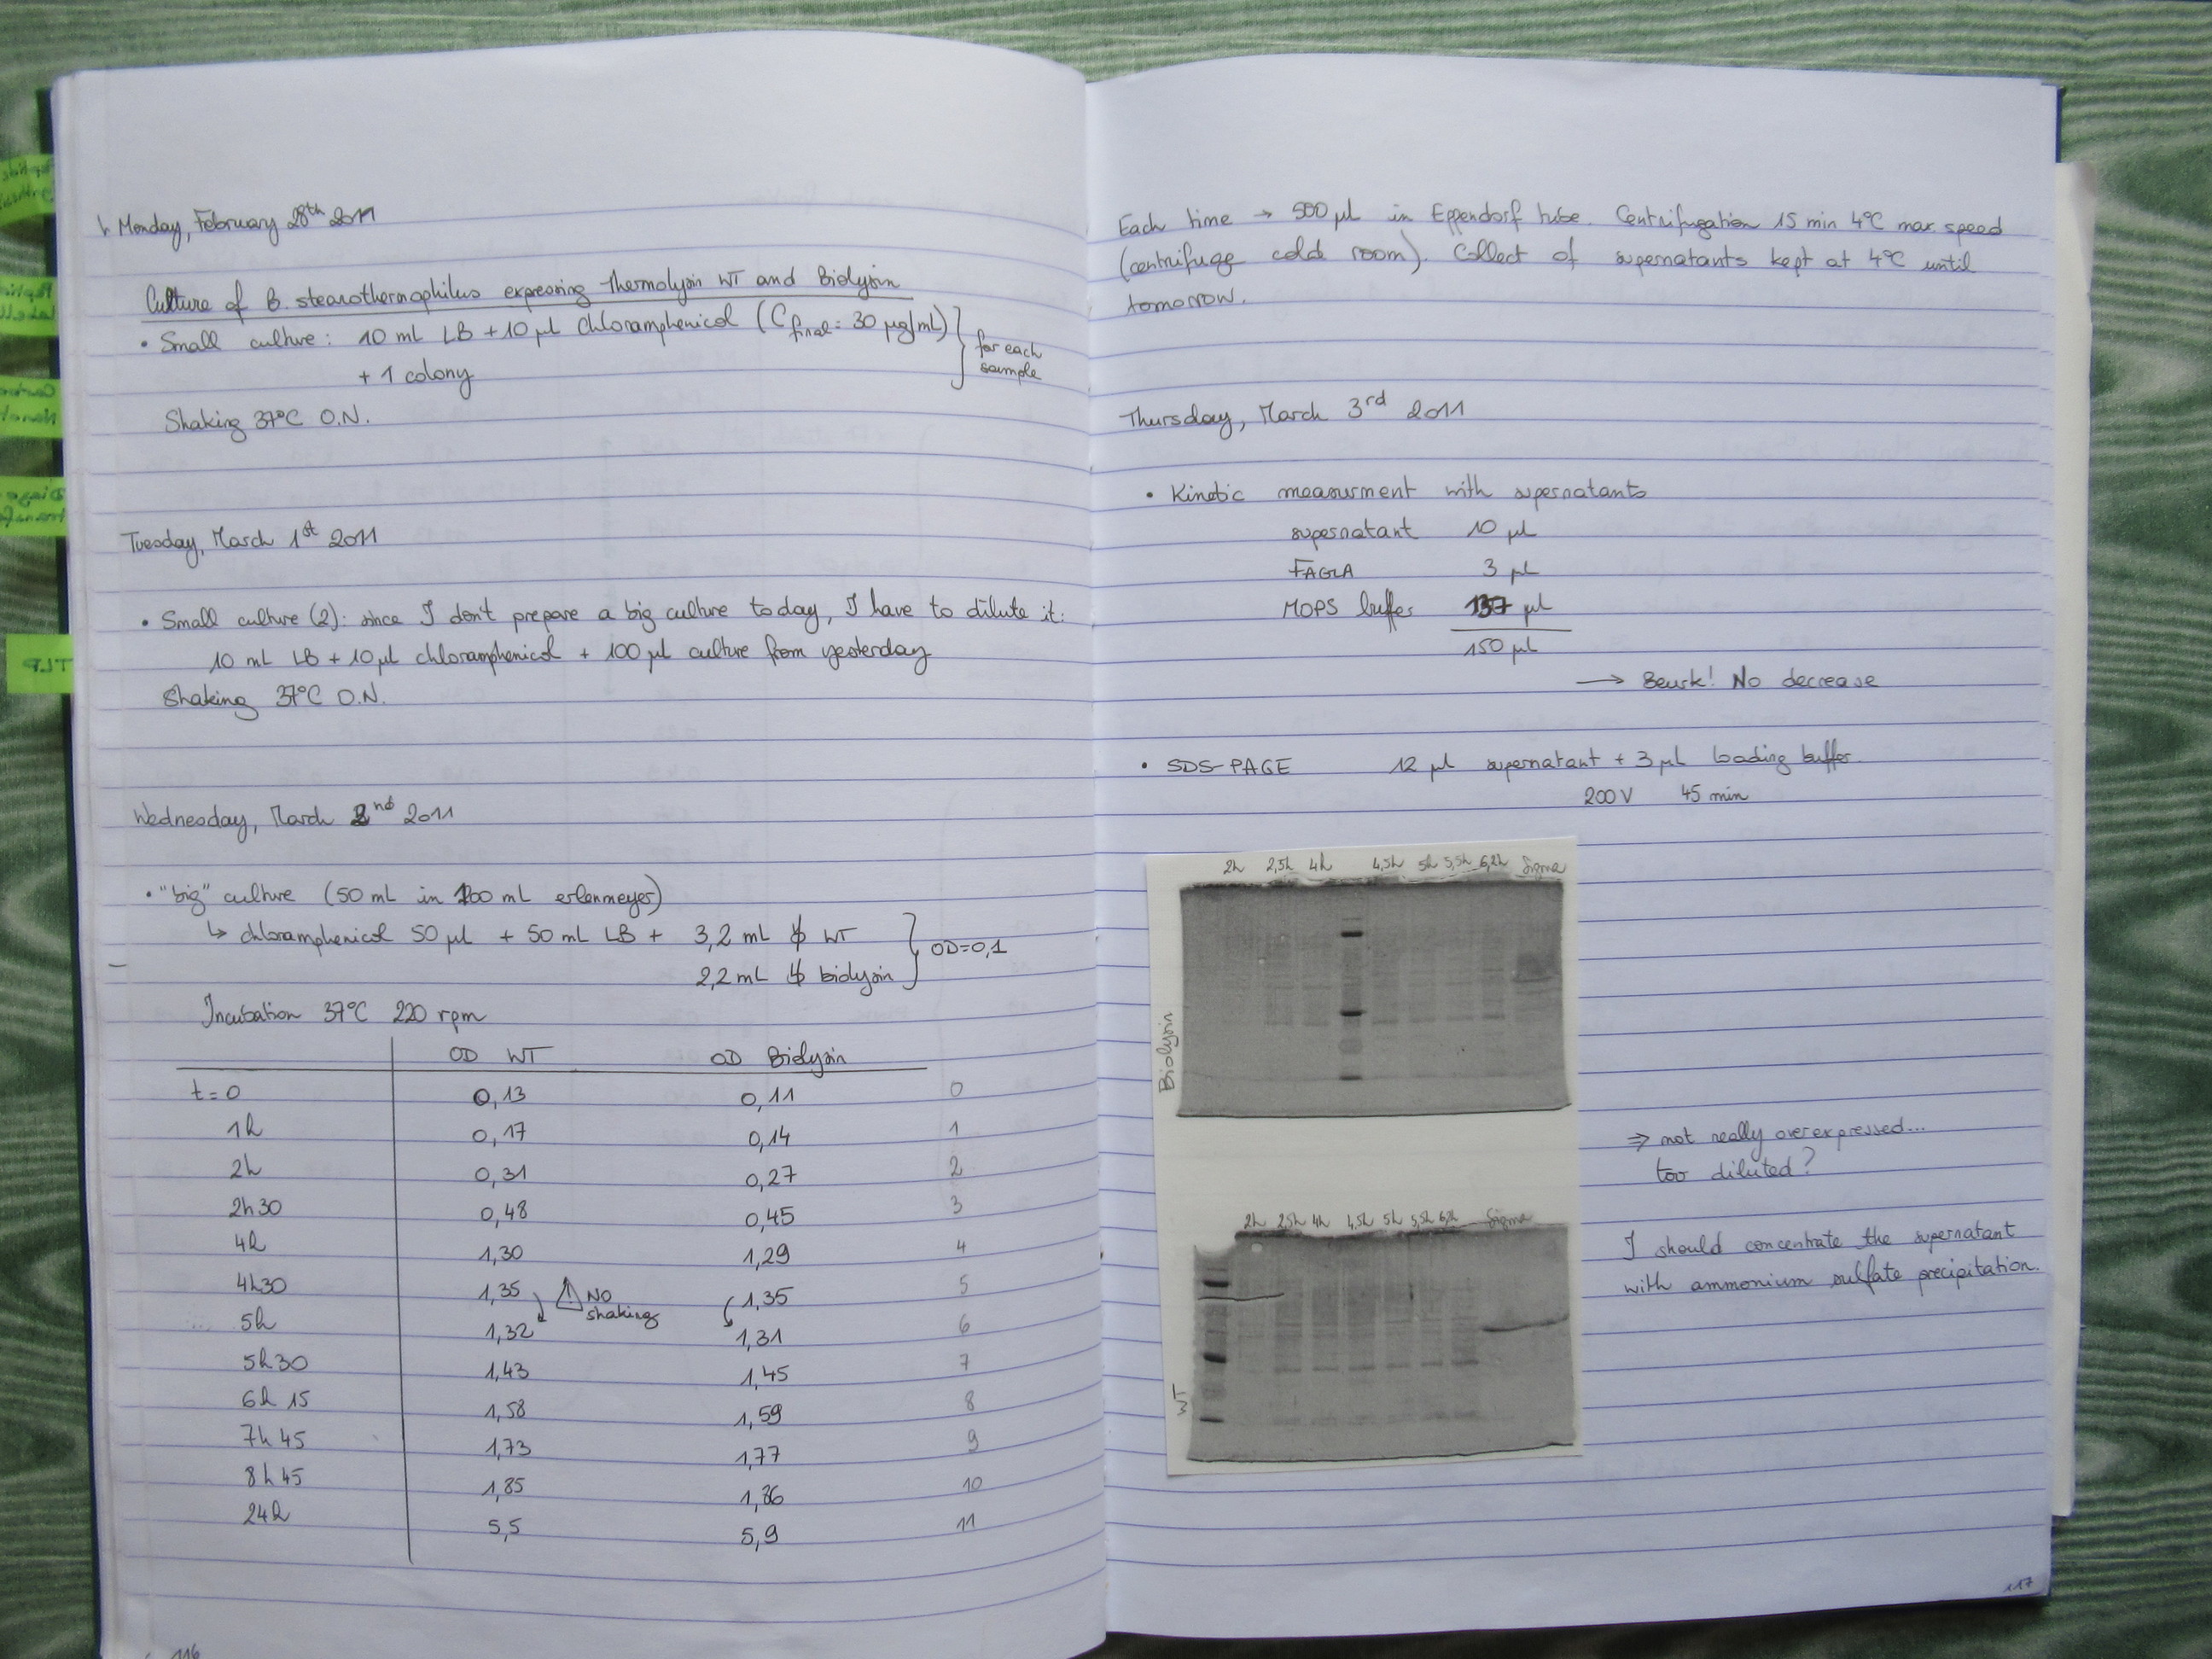 Monday, February 28th 2011
Culture of B. stearothermophilus expressing Thermolysin WT and Biolysin
• Small culture : 10 mL LB + 10 µl chloramphenicol (Cfinal = 30 µg/mL)
+ 1 colony
for each
sample
Shaking 37°C O.N.
Tuesday, March 1st 2011
• Small culture (2): since I don't prepare a big culture today, I have to dilute it:
10 mL LB + 10 µl chloramphenicol + 100 µl culture from yesterday
Shaking 37°C O.N.
Wednesday, March 2nd 2011
• "big" culture (50 mL in 100 mL erlenmeyer)
↳ chloramphenicol 50 µl + 50 mL LB + 3,2 mL WT
2,2 mL biolysin
OD=0,1
Incubation 37°C 220 rpm
OD WT OD Biolysin
t=0 0,13 0,11 0
1h 0,17 0,14 1
2h 0,31 0,27 2
2h30 0,48 0,45 3
4h 1,30 1,29 4
4h30 1,35 1,35 5
NO
shaking
5h 1,32 1,31 6
5h30 1,43 1,45 7
6h15 1,58 1,59 8
7h45 1,73 1,77 9
8h45 1,85 1,86 10
24h 5,5 5,9 11
116
TLP
Each time → 500 µl in Eppendorf tube. Centrifugation 15 min 4°C max speed
(centrifuge cold room). Collect of supernatants kept at 4°C until
tomorrow.
Thursday, March 3rd 2011
• Kinetic measurment with supernatants
supernatant 10 µl
FAGLA 3 µl
MOPS buffer 137 µl
150 µl
→ Beurk! No decrease
• SDS-PAGE 12 µl supernatant + 3 µL loading buffer.
200V 45 min
2h 2,5h 4h 4,5h 5h 5,5h 6,2h Sigma
Biolysin
⇒ not really overexpressed...
too diluted?
2h 2,5h 4h 4,5h 5h 5,5h 6,2h Sigma
WT
I should concentrate the supernatant
with ammonium sulfate precipitation.
117